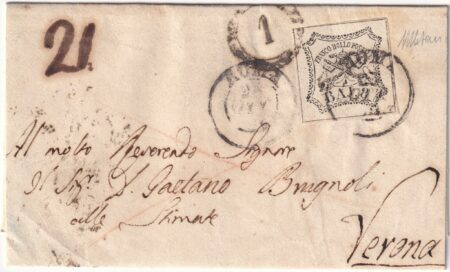 21
1
ROMA
FRANCO BOLLO POSTALE
BAJ
ROMA
Al molto Reverendo Signore
Il Sigr. D. Gaetano Brugnoli
alle Stimate
Verona